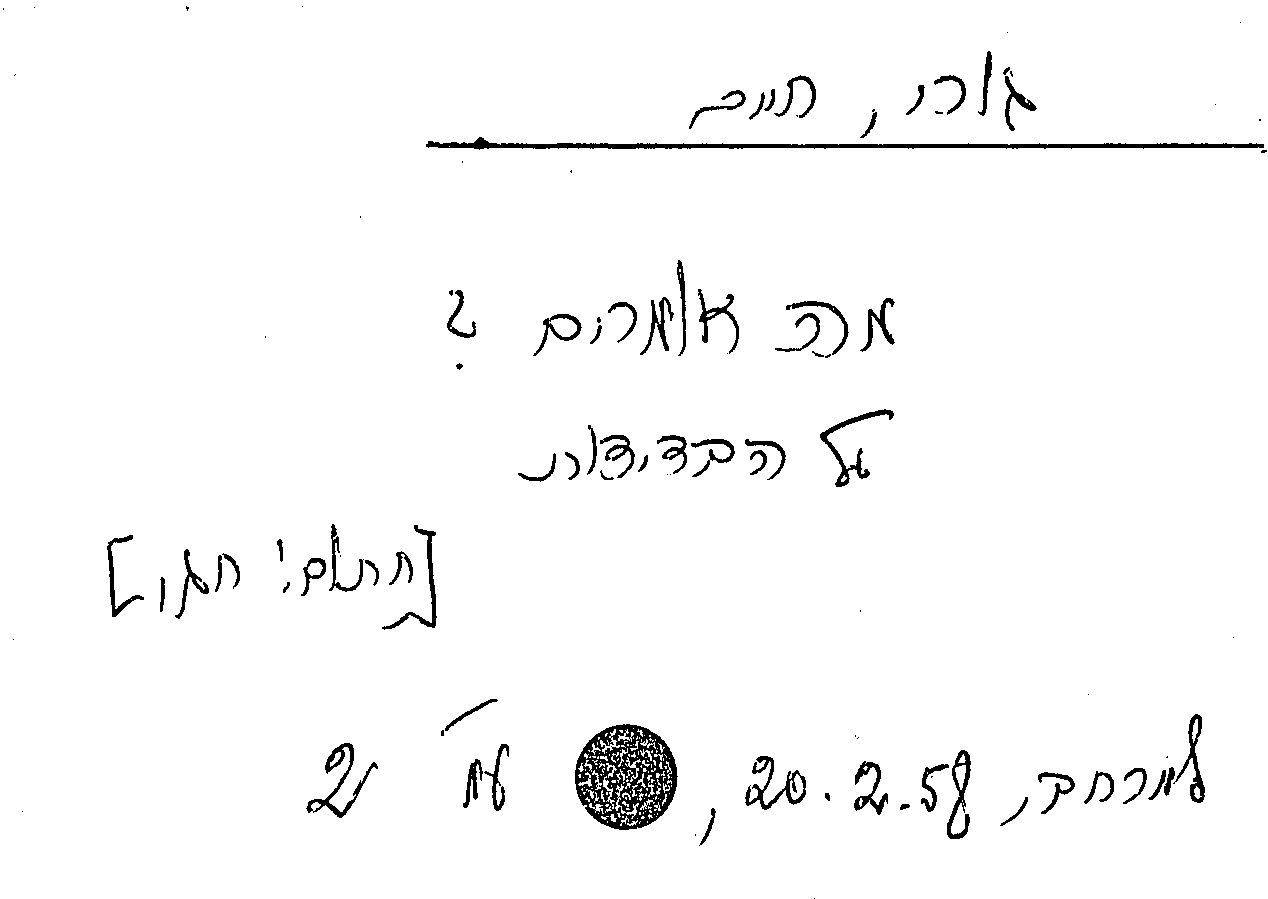 גורי, חיים
מה אומרים ?
על הבדידות
[חתום: חגי]
למרחב, 20.2.58, עמ' 2